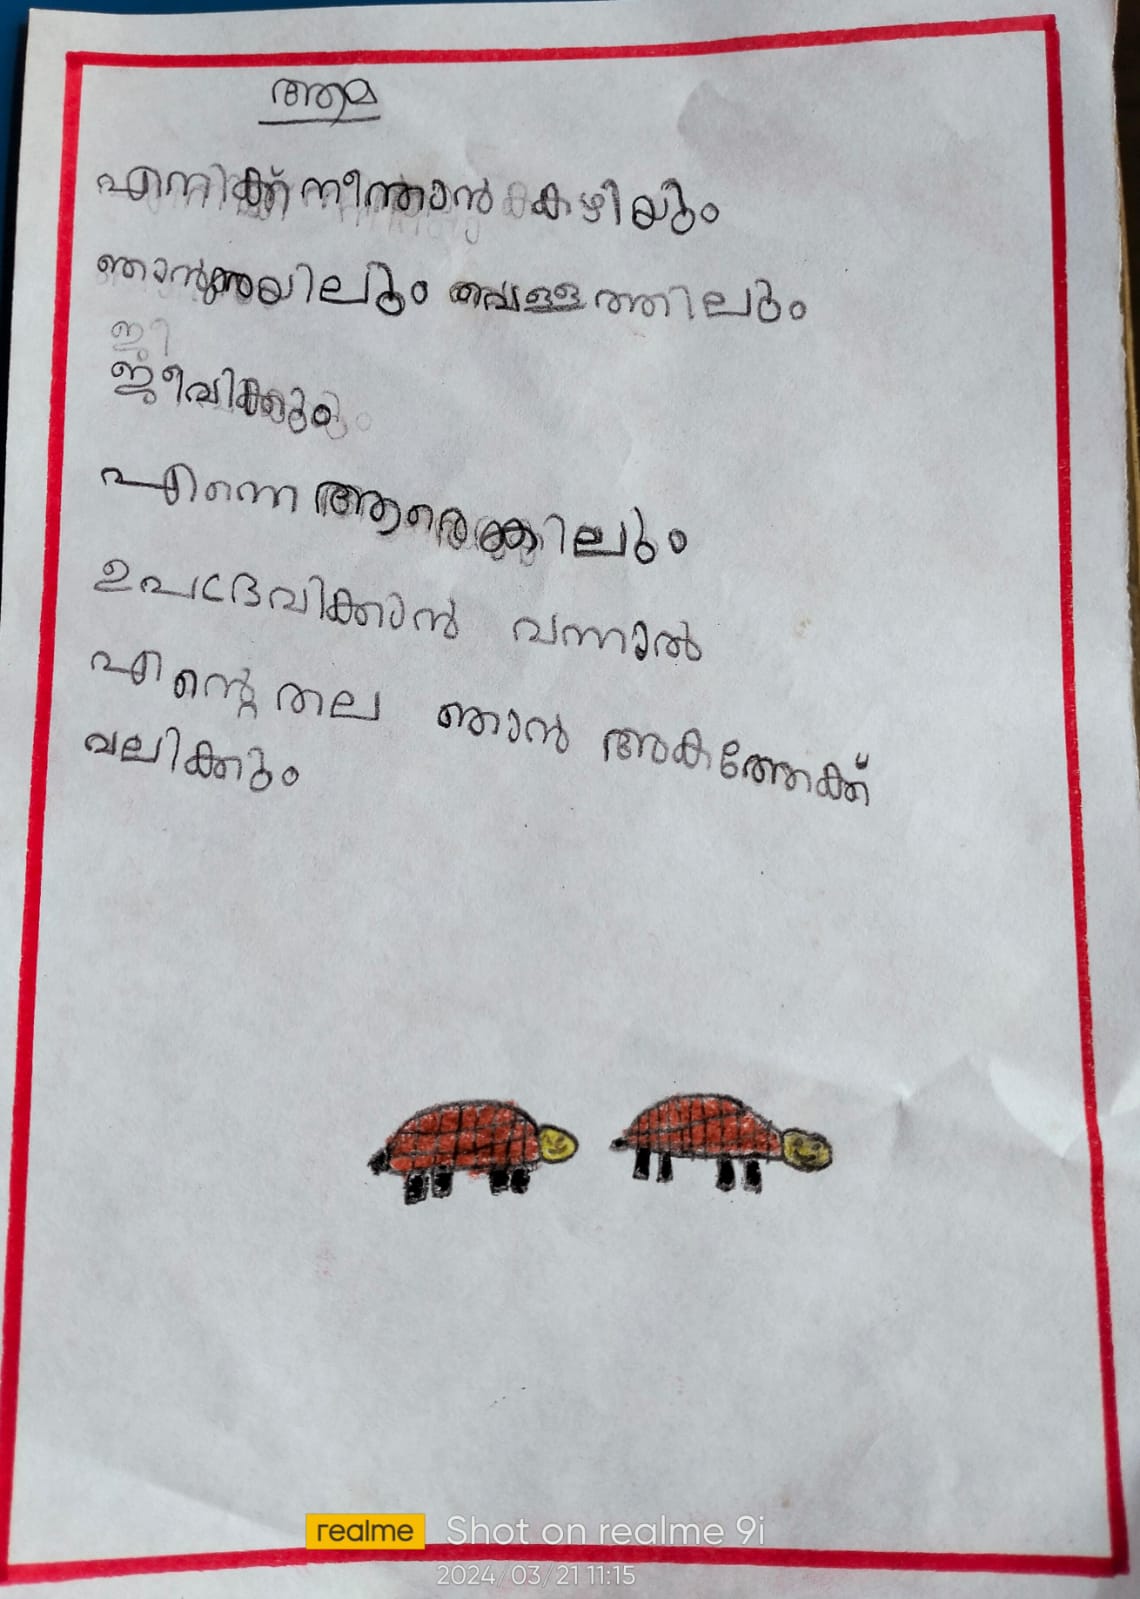 ആമ
എന്നിക്ക് നീന്താൻ കഴിയും
ഞാൻ കരയിലും വെള്ളത്തിലും
ജീ
ജീവിക്കും
എന്നെ ആരെങ്കിലും
ഉപദ്രേവിക്കാൻ വന്നാൽ
എന്റെ തല ഞാൻ അകത്തേക്ക്
വലിക്കും
realme Shot on realme 9i
2024/03/21 11:15